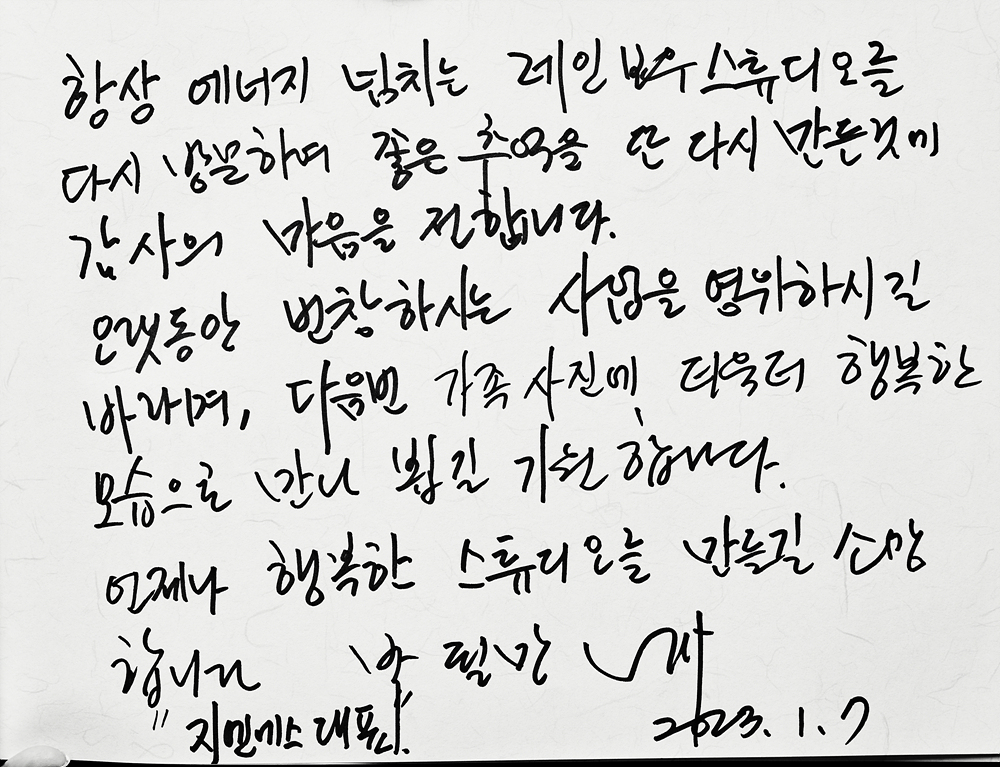 항상 에너지 넘치는 레인보우스튜디오를
다시 방문하여 좋은 추억을 또 다시 만든것에
감사의 마음을 전합니다.
오랫동안 번창하시는 사업을 영위하시길
바라며, 다음번 가족사진에 더욱더 행복한
모습으로 만나 뵙길 기원합니다.
언제나 행복한 스튜디오를 만들길 소망
합니다 박
대표
2023. 1. 7